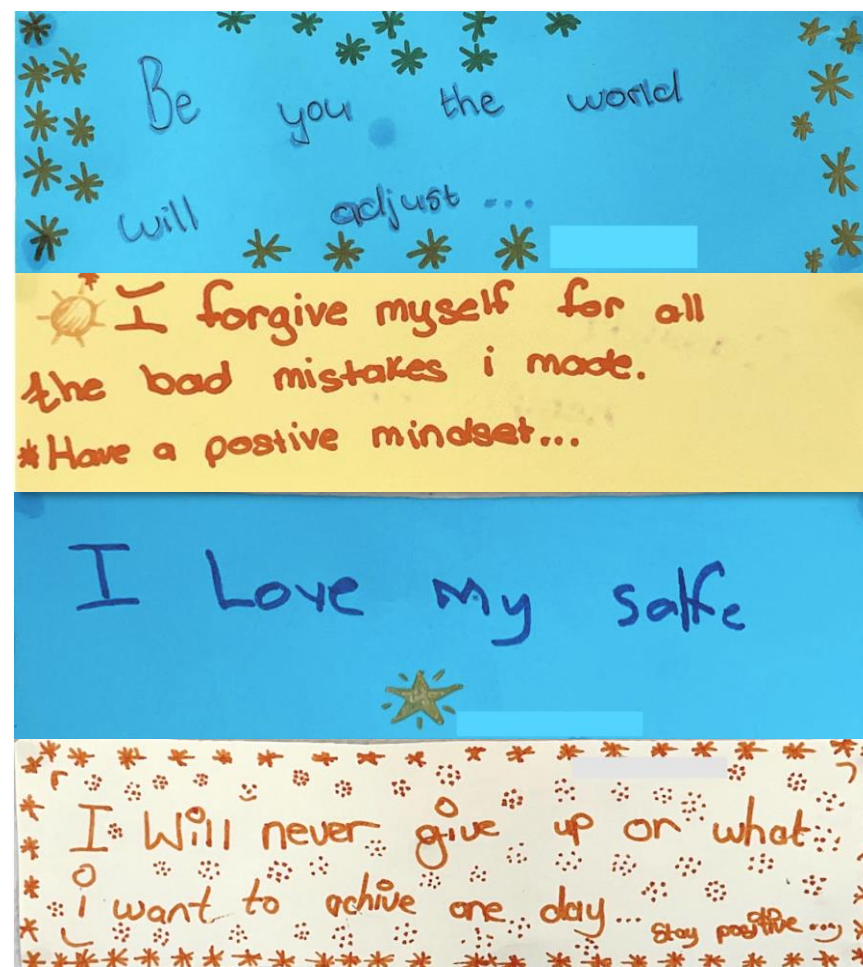 Be you the world
will adjust...
I forgive myself for all
the bad mistakes i made.
*Have a postive mindset...
I Love my salfe
I Will never give up on what
i want to achive one day...
Stay positive...